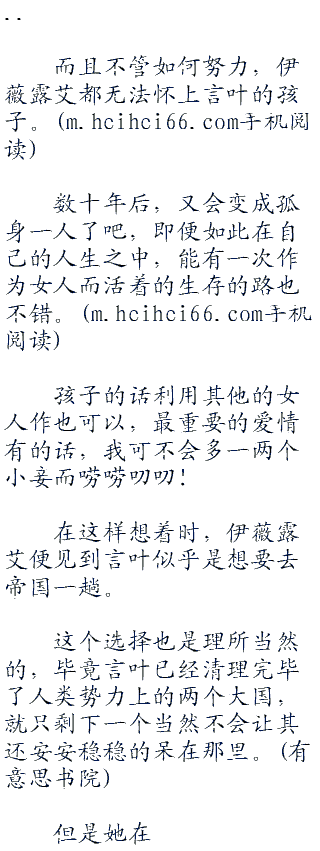 ..
而且不管如何努力，伊
薇露艾都无法怀上言叶的孩
子。(m.hcihci66.com手机阅
读)
数十年后，又会变成孤
身一人了吧，即便如此在自
己的人生之中，能有一次作
为女人而活着的生存的路也
不错。(m.hcihci66.com手机
阅读)
孩子的话利用其他的女
人作也可以，最重要的爱情
有的话，我可不会多一两个
小妾而唠唠叨叨！
在这样想着时，伊薇露
艾便见到言叶似乎是想要去
帝国一趟。
这个选择也是理所当然
的，毕竟言叶已经清理完毕
了人类势力上的两个大国，
就只剩下一个当然不会让其
还安安稳稳的呆在那里。(有
意思书院)
但是她在